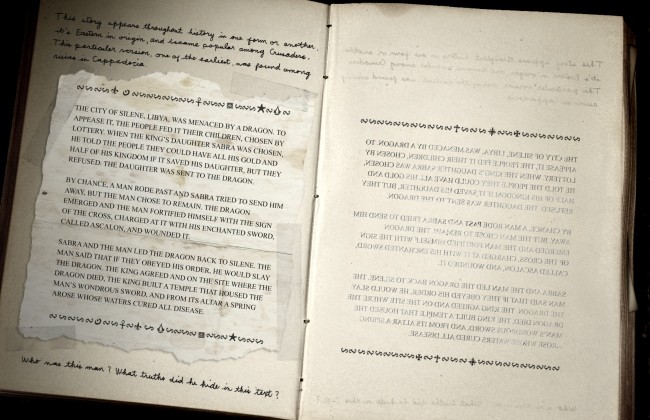 This story appears throughout history in one form or another,
it's Eastern in origin, and became popular among Crusaders.
This particular version, one of the earliest, was found among
ruins in Cappadocia
THE CITY OF SILENE, LIBYA, WAS MENACED BY A DRAGON. TO
APPEASE IT, THE PEOPLE FED IT THEIR CHILDREN, CHOSEN BY
LOTTERY. WHEN THE KING'S DAUGHTER SABRA WAS CHOSEN,
HE TOLD THE PEOPLE THEY COULD HAVE ALL HIS GOLD AND
HALF OF HIS KINGDOM IF IT SAVED HIS DAUGHTER, BUT THEY
REFUSED. THE DAUGHTER WAS SENT TO THE DRAGON.
BY CHANCE, A MAN RODE PAST AND SABRA TRIED TO SEND HIM
AWAY, BUT THE MAN CHOSE TO REMAIN. THE DRAGON
EMERGED AND THE MAN FORTIFIED HIMSELF WITH THE SIGN
OF THE CROSS, CHARGED AT IT WITH HIS ENCHANTED SWORD,
CALLED ASCALON, AND WOUNDED IT.
SABRA AND THE MAN LED THE DRAGON BACK TO SILENE. THE
MAN SAID THAT IF THEY OBEYED HIS ORDER, HE WOULD SLAY
THE DRAGON. THE KING AGREED AND ON THE SITE WHERE THE
DRAGON DIED, THE KING BUILT A TEMPLE THAT HOUSED THE
MAN'S WONDROUS SWORD, AND FROM ITS ALTAR A SPRING
AROSE WHOSE WATERS CURED ALL DISEASE.
Who was this man? What truths did he hide in this text?